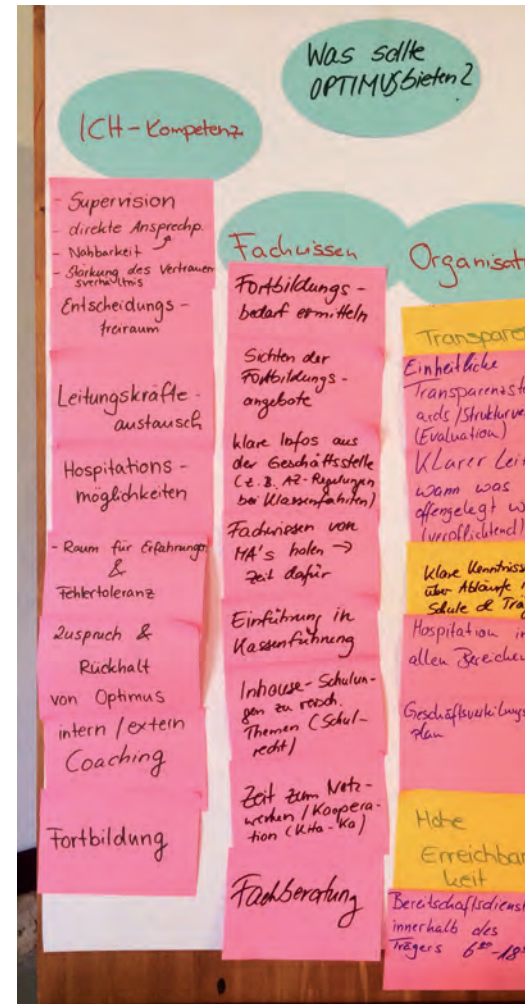 Was sollte
OPTIMUS bieten?
ICH-Kompetenz
- Supervision
- direkte Ansprechp.
- Nahbarkeit
- Stärkung des Vertrauen
sverhältnis
Entscheidungs-
freiraum
Leitungskräfte-
austausch
Hospitations-
möglichkeiten
- Raum für Erfahrungen
&
Fehlertoleranz
Zuspruch &
Rückhalt
von Optimus
intern / extern
Coaching
Fortbildung
Fachwissen
Fortbildungs-
bedarf ermitteln
Sichten der
Fortbildungs-
angebote
klare Infos aus
der Geschäftsstelle
(z.B. AZ-Regelungen
bei Klassenfahrten)
Fachwissen von
MA's holen →
Zeit dafür
Einführung in
Kassenführung
Inhouse-Schulun-
gen zu
Themen (Schul-
recht)
Zeit zum Netz-
werken / Koopera-
tion (Kita-Ka)
Fachberatung
Organisati
Transparen
Einheitliche
Transparenzst
ards / Strukturve
(Evaluation)
Klarer Lei
wann was
offengelegt w
(verpflichtend)
Klare Kenntniss
über Abläufe
Schule & Trä
Hospitation in
allen Bereichen
Geschäftsverteilungs
plan
Hohe
Erreichbar
keit
Bereitschaftsdienst
innerhalb des
Trägers 6⁰⁰-18